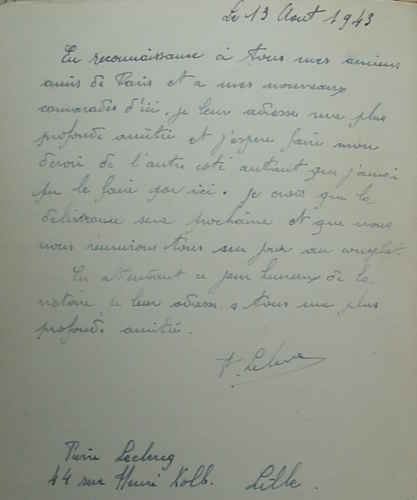 Le 13 Août 1943
En reconnaissance à tous mes anciens
amis de Paris et a mes nouveaux
camarades d'ici. je leur adresse ma plus
profonde amitié et j'espère faire mon
devoir de l'autre coté autant que j'aurai
pu le faire par ici. je crois que la
délivrance sera prochaine et que nous
nous réunirons tous un jour au complet.
En attendant ce jour heureux de la
victoire, je leur adresse a tous ma plus
profonde amitié.
P. Leclercq
Pierre Leclercq
44 rue Henri Kolb. Lille.